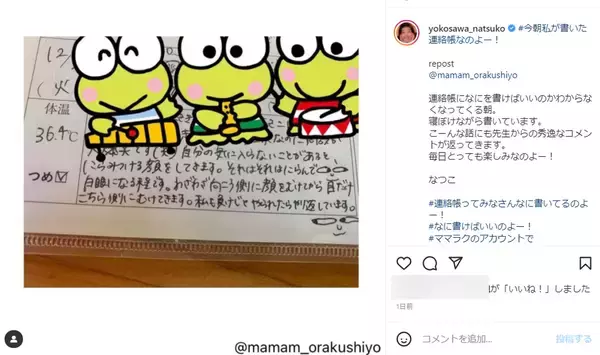 12/
(火
体温
36.4℃
つめ☑
自分の気に入らないことがあると、
にらみつける顔をしてきます。それはそれはにらんで
白眼になる程です。わざわざ向こう側に顔をむけてから目だけ
こちら側にむけてきます。私も負けじとやられたらやり返しています。
@mamam_orakushiyo
yokosawa_natsuko #今朝私が書いた
連絡帳なのよー！
repost
@mamam_orakushiyo
連絡帳になにを書けばいいのかわからな
くなってくる朝。
寝ぼけながら書いています。
こーんな話にも先生からの秀逸なコメント
が返ってきます。
毎日とっても楽しみなのよー！
なつこ
#連絡帳ってみなさんなに書いてるのよ
ー！
#なに書けばいいのよー！
#ママラクのアカウントで
が「いいね！」しました
1日前
コメントを追加...
投稿する